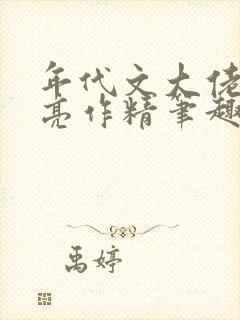 年代文大佬
亮作精笔趣
禹婷